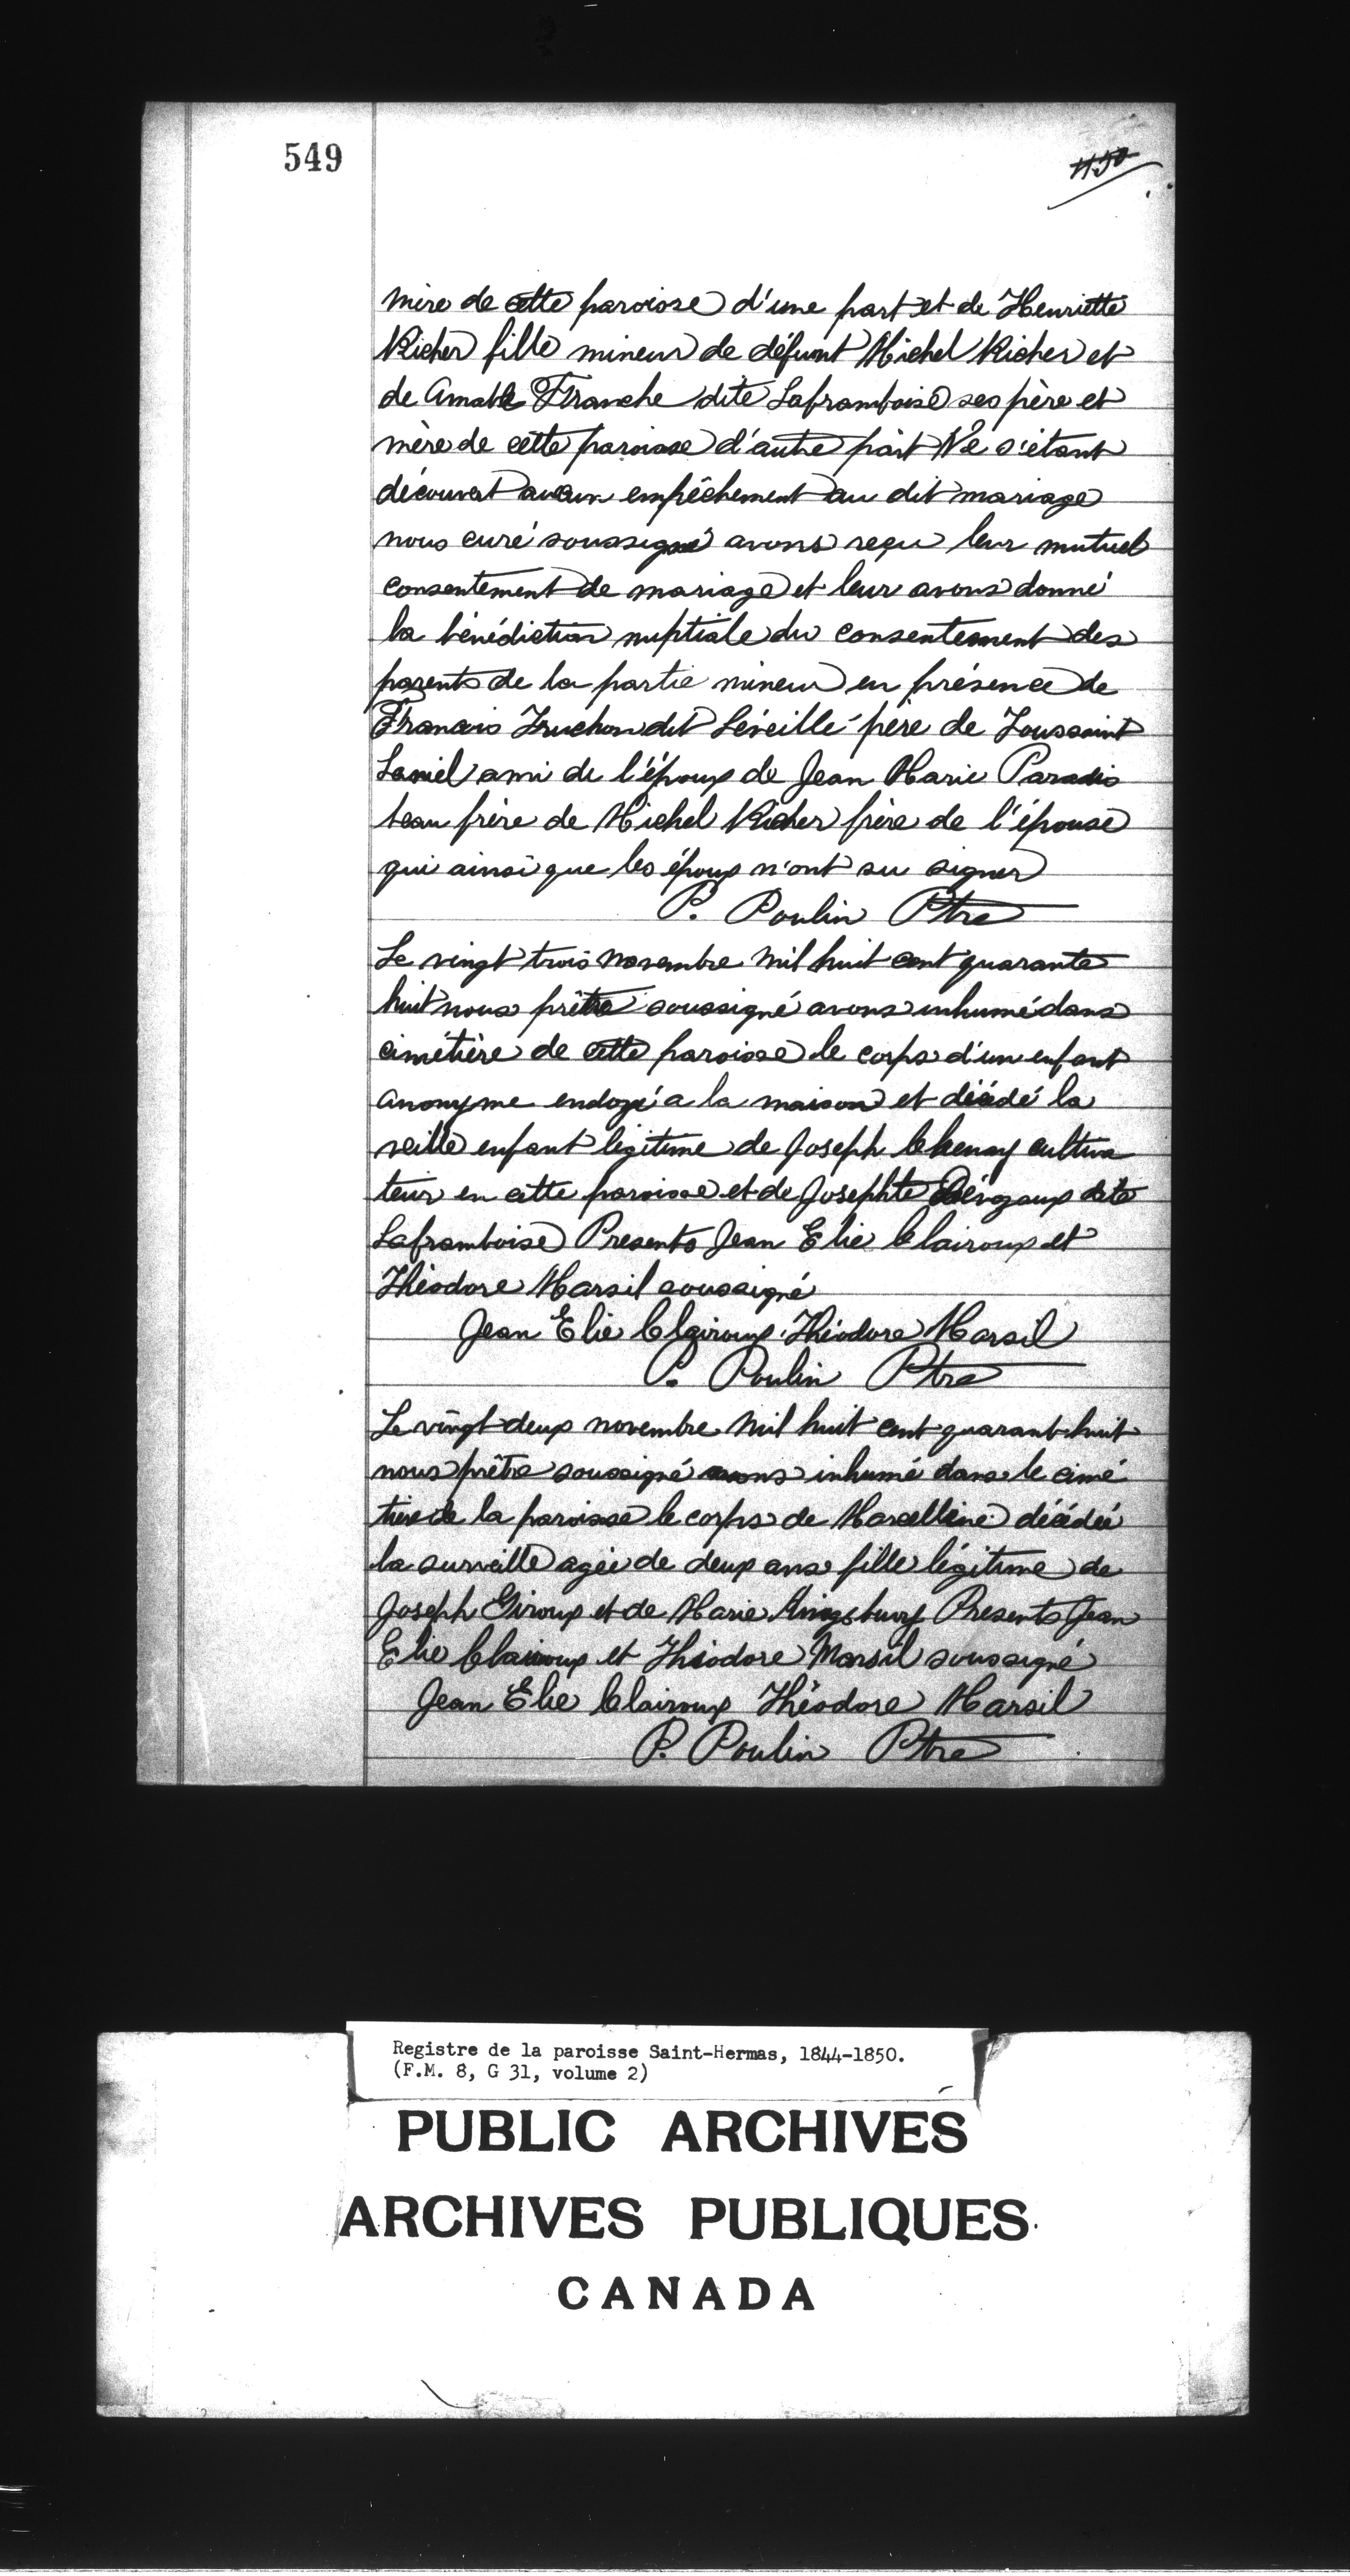 549
mère de cette paroisse d'une part et de Henriette
Richer fille mineur de défunt Michel Richer et
de Amable Franche dite Laframboise ses père et
mère de cette paroisse d'autre part Ne s'étant
découvert aucun empêchement au dit mariage
nous curé soussigné avons reçu leur mutuel
consentement de mariage et leur avons donné
la bénédiction nuptiale du consentement des
parents de la partie mineur en présence de
Francois Truchon dit Léveillé père de Toussaint
Laniel ami de l'époux de Jean Marie Paradis
beau frère de Michel Richer frère de l'épouse
qui ainsi que les époux n'ont su signer
P. Poulin Ptre
Le vingt trois novembre mil huit cent quarante
huit nous prêtre soussigné avons inhumé dans
cimétière de cette paroisse le corps d'un enfant
anonyme endoyé a la maison et décédé la
veille enfant légitime de Joseph Chenay cultiva
teur en cette paroisse et de Josephte dite
Laframboise Presents Jean Elie Clairoux et
Théodore Marsil soussigné
Jean Elie Clairoux Théodore Marsil
P. Poulin Ptre
Le vingt deux novembre mil huit cent quarant huit
nous prêtre soussigné avons inhumé dans le cimé
tière de la paroisse le corps de Marcelline décédée
la surveille agée de deux ans fille légitime de
Joseph Giroux et de Marie Kingsbury Presents Jean
Elie Clairoux et Théodore Marsil soussigné
Jean Elie Clairoux Théodore Marsil
P. Poulin Ptre
Registre de la paroisse Saint-Hermas, 1844-1850.
(F.M. 8, G 31, volume 2)
PUBLIC ARCHIVES
ARCHIVES PUBLIQUES
CANADA